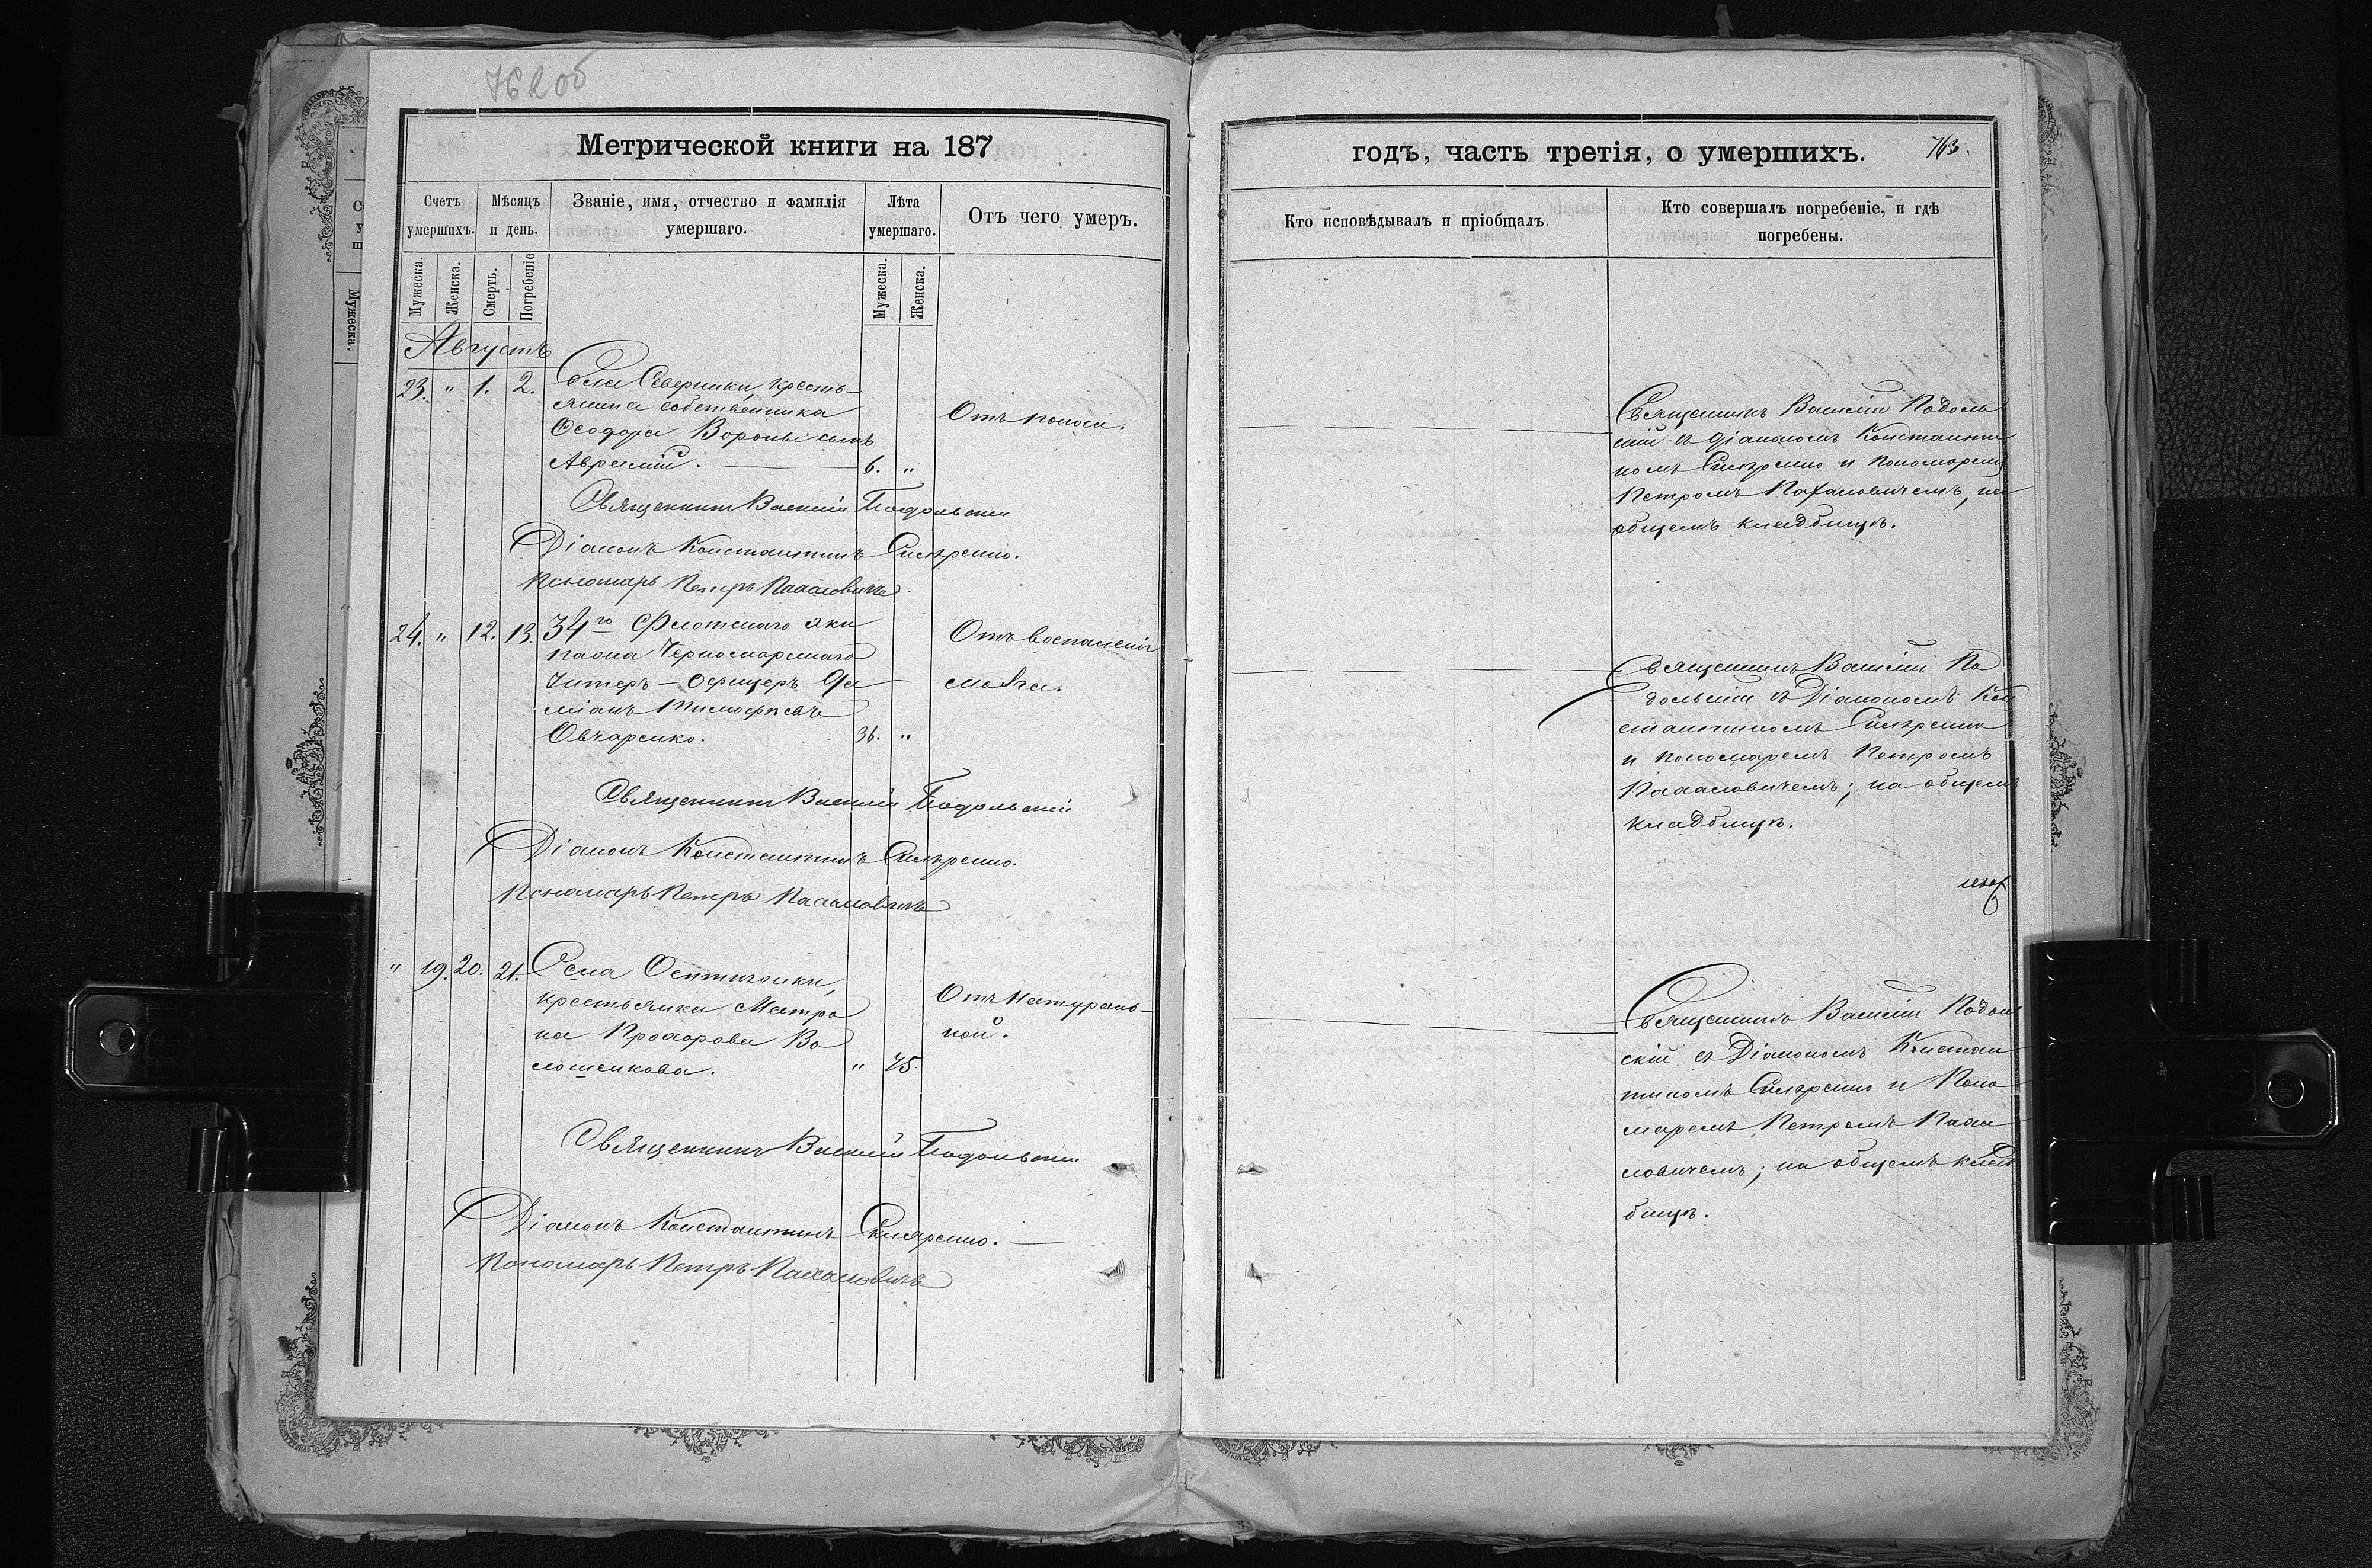 762об
Метрической книги на 187
Счетъ умершихъ.
Мѣсяцъ и день.
Званіе, имя, отчество и фамилія умершаго.
Лѣта умершаго.
Отъ чего умеръ.
Мужеска.
Женска.
Смерть.
Погребеніе
Мужеска.
Женска.
Августъ
23. " 1. 2. Села Северинки, кресть-
янина собственника
Ѳеодора Вороны сынъ
Аврамій. — 6. "
Отъ поноса.
Священникъ Василій Подольскій
Діаконъ Константинъ Скляренко.
Пономарь Петръ Пахаловичъ
24. " 12. 13. 34го Флотскаго эки
пажа Черноморскаго
Унтеръ-Офицеръ Да
міанъ Тимофѣевъ
Овчаренко. 36. "
Отъ воспаленія
мозга.
Священникъ Василій Подольскій
Діаконъ Константинъ Скляренко.
Пономарь Петръ Пахаловичъ
" 19. 20. 21. Села
крестьянка Матро
на Прохорова Во
лошенкова. " 75.
Отъ натураль-
ной.
Священникъ Василій Подольскій
Діаконъ Константинъ Скляренко. —
Пономарь Петръ Пахаловичъ
годъ, часть третія, о умершихъ.
763.
Кто исповѣдывалъ и пріобщалъ.
Кто совершалъ погребеніе, и гдѣ
погребены.
Священникъ Василій Подоль
скій съ Діакономъ Константи
номъ Скляренко и Пономаремъ
Петромъ Пахаловичемъ, на
общемъ кладбищѣ.
Священникъ Василій По
дольскій съ Діакономъ Кон
стантиномъ Скляренко
и пономаремъ Петромъ
Пахаловичемъ; на общемъ
кладбищѣ.
Священникъ Василій Подоль
скій съ Діакономъ Констан
тиномъ Скляренко и Поно
маремъ Петромъ Паха
ловичемъ; на общемъ клад
бищѣ.